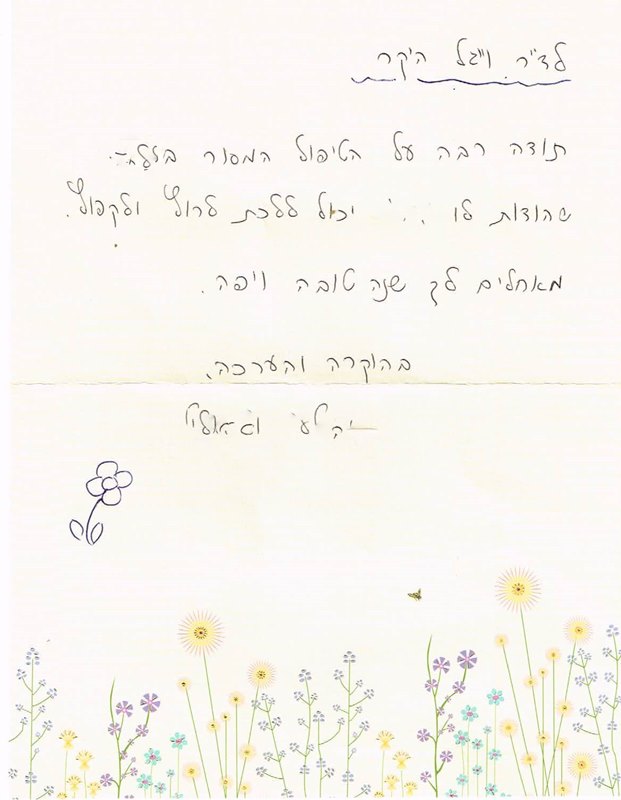 לד"ר וייגל היקר
תודה רבה על הטיפול המסור
שהודות לו יכול ללכת לרוץ ולקפוץ.
מאחלים לך שנה טובה ויפה.
בהוקרה והערכה,